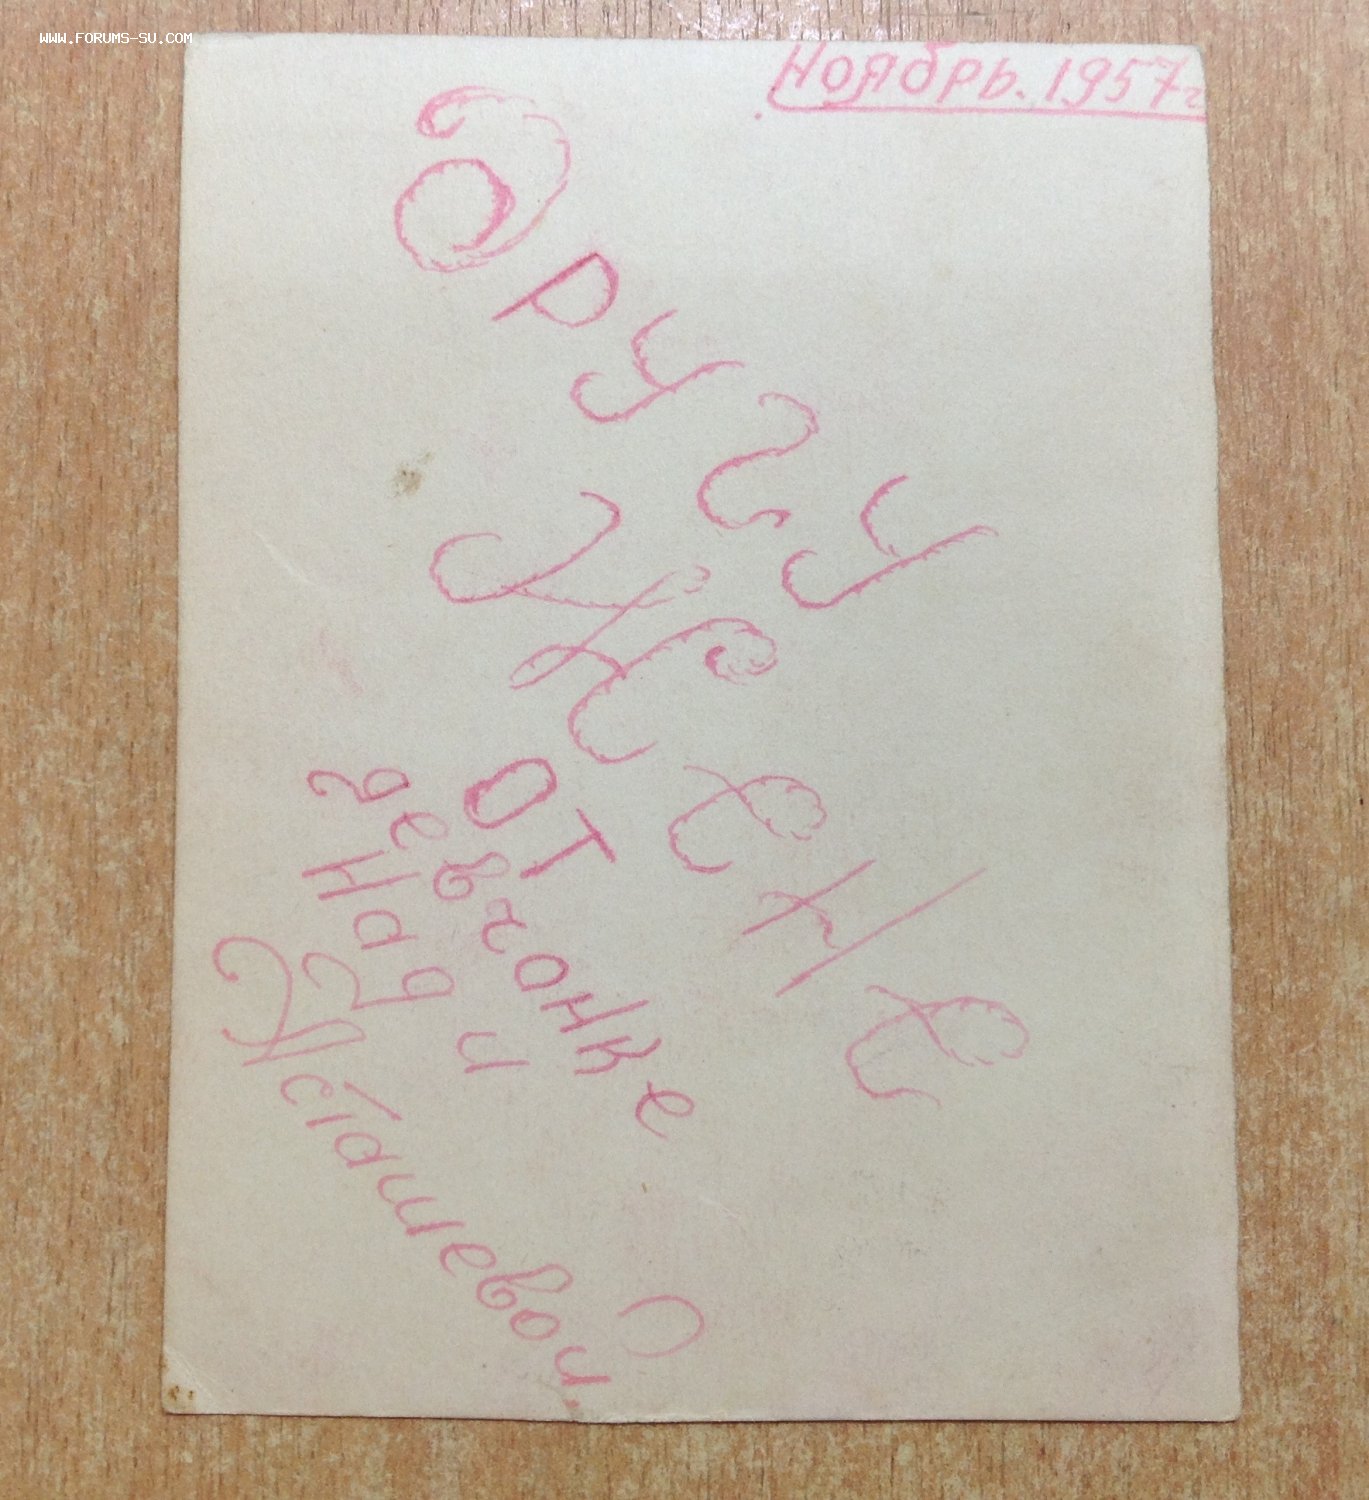 WWW.FORUMS-SU.COM
Ноябрь. 1957г
Другу
Жене
от
девчонке
Нади
Асташевой.